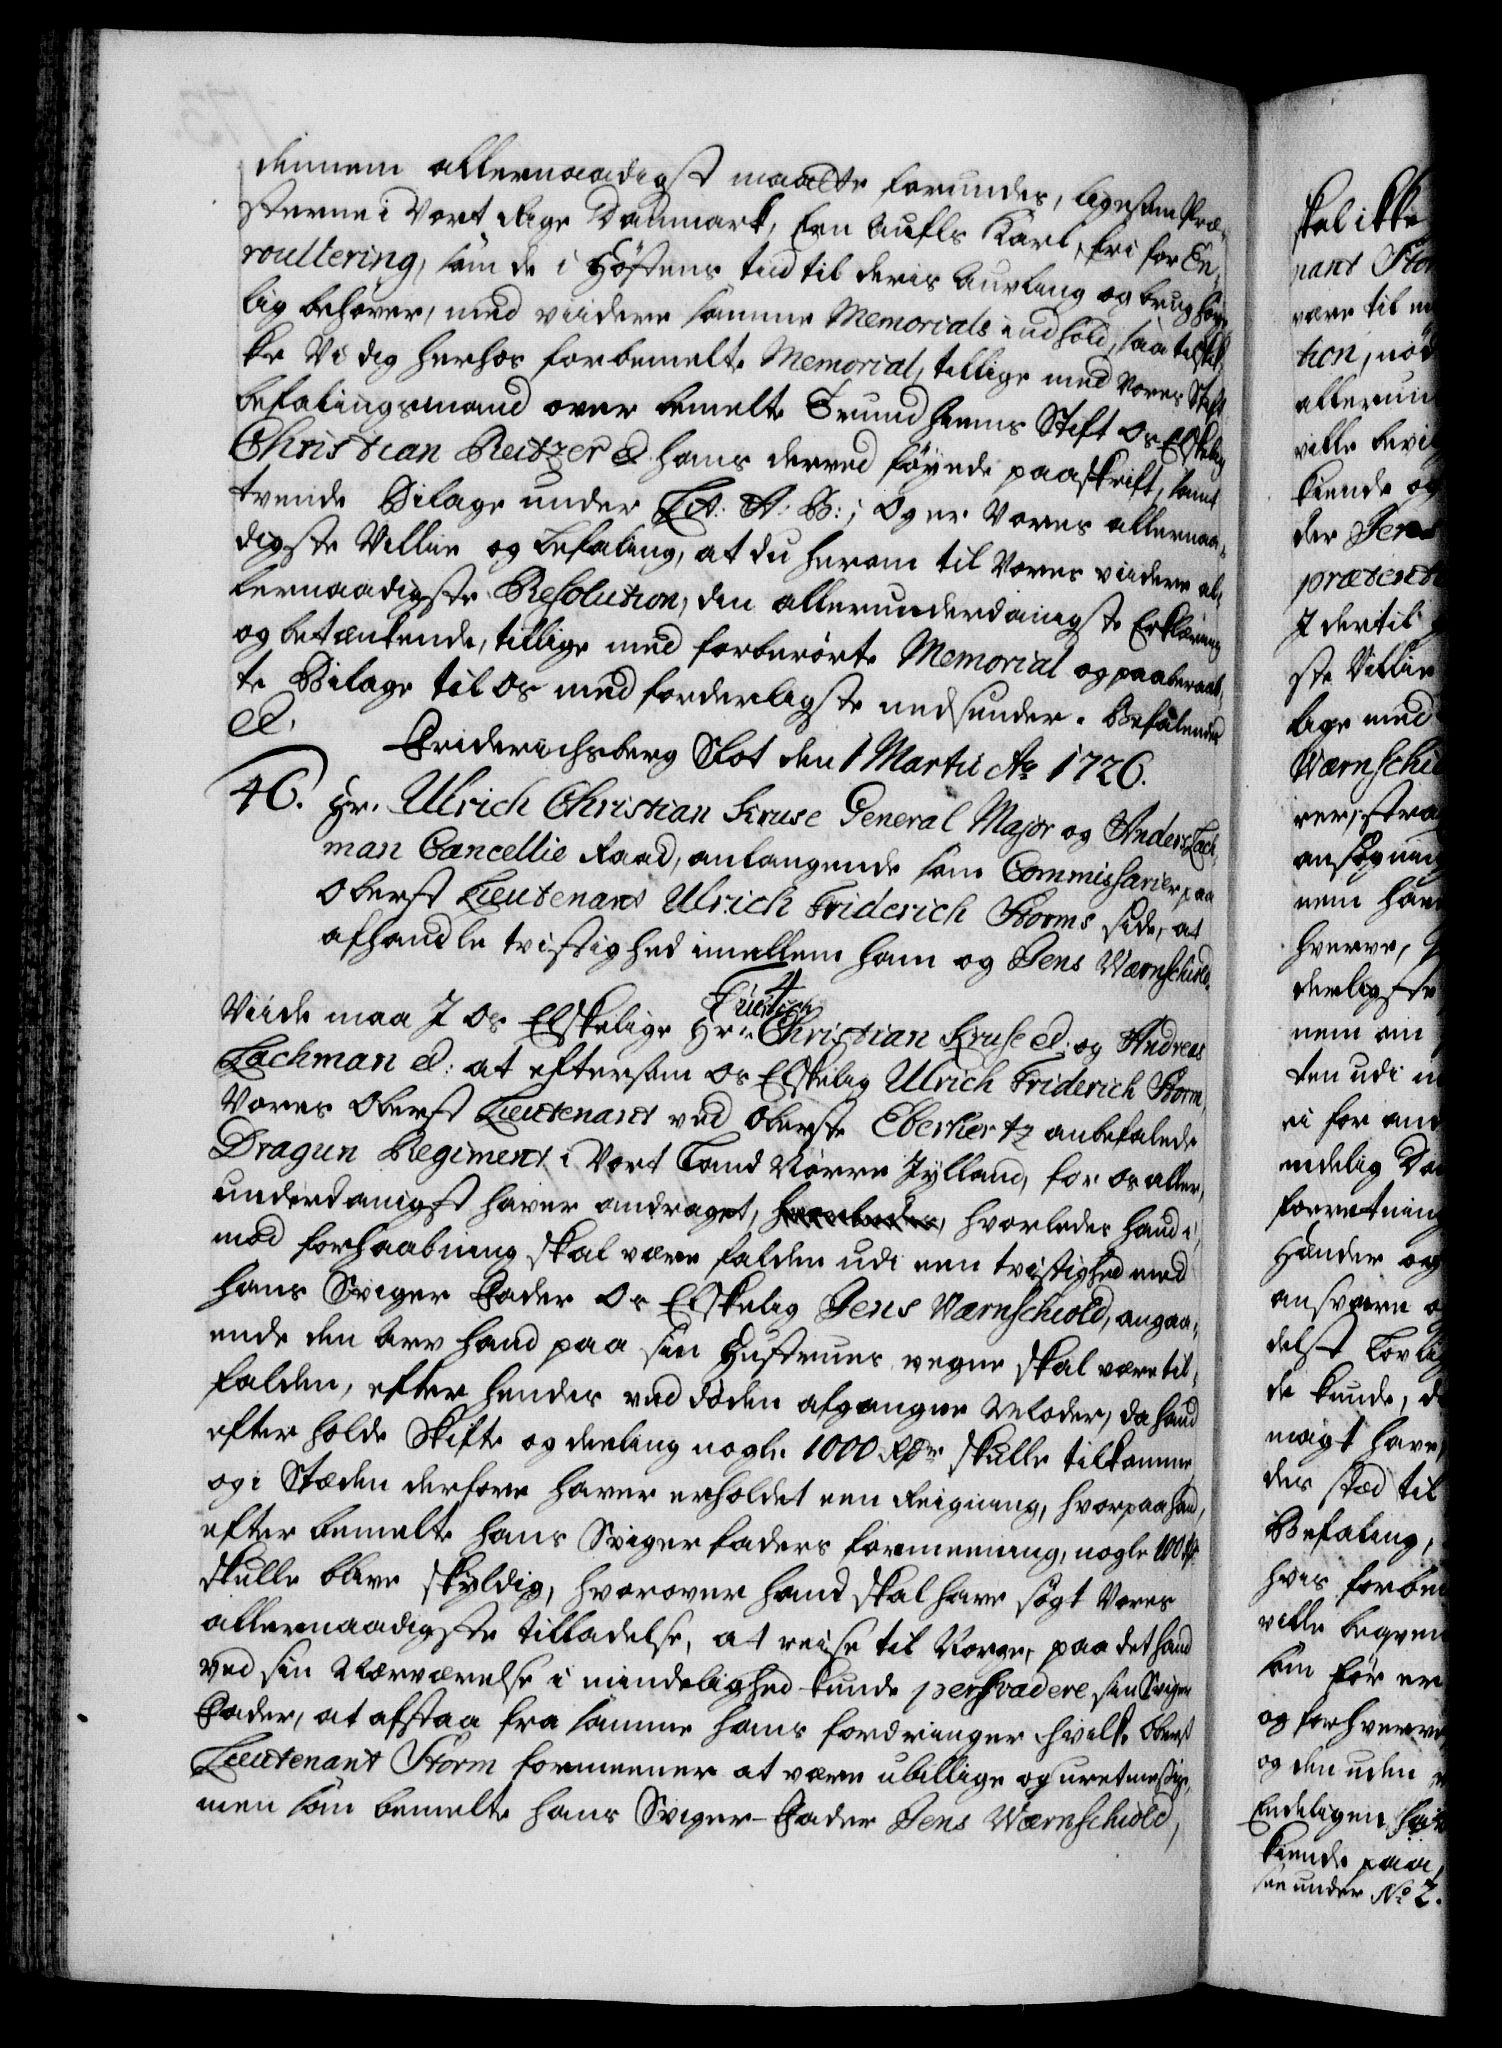 dennem allernaadigst maatte forundes, ligesom Præ-
sterne i Vort Rige Danmark, Een Aufls Karl, fri for En-
roullering, som de i Høstens tid til deris Auvling og brug høy-
lig behøver, med viidere samme Memorials indhold, saa tilskik-
ke Vi dig herhos forbemelte Memorial, tillige med Vores Stift
befalingsmand over bemelte Trundhiems Stift Os Elskelig
Christian Reitzer &c. hans derved føyede paaskrift, samt
tvende Bilage under Lit: A: B:; Og er Vores allernaa-
digste Villie og befaling, at du herom til Vores viidere al-
lernaadigste Resolution, den allerunderdanigste Erklæring
og betænkende, tillige med forberørte Memorial og paaberaab-
te Bilage til Os med forderligste nedsender. Befalendes
&c.
Friderichsberg Slot den 1 Martii Ao 1726.
46. Hr. Ulrich Christian Kruse General Major og Anders Lach-
man Cancellie Raad, anlangende som Commissarier paa
Oberst Lieutenant Ulrich Friderich Storms side, at
afhandle tvistighed imellem ham og Jens Wærnschiold.
4
Friderich
Viide maa I Os Elskelige Hr. Christian Kruse &c: og Andreas
Lachman &c: at eftersom Os Elskelig Ulrich Friderich Storm,
Vores Oberst Lieutenant ved Oberste Eberhertz anbefalede
Dragun Regiment i Vort Land Nørre Jylland, for os aller-
underdanigst haver andraget, hvorledes, hvorledes hand i-
mod forhaabning skal være falden udi een tvistighed med
hans Sviger Fader Os Elskelig Jens Wærnschiold, angaa-
ende den Arv hand paa sin Hustrues vegne skal være til-
falden, efter hendes ved døden afgangne Moder, da hand
efter holde Skifte og deeling nogle 1000 Rdr skulle tilkomme
og i Stæden derfore haver erholdet een Reigning, hvorpaa hand,
efter bemelte hans Sviger faders formeening, nogle 100 Rdr
skulle blive skyldig, hvorover hand skal have søgt Vores
allernaadigste tilladelse, at reise til Norge, paa det hand
ved sin Nærværelse i mindelighed kunde persvadere sin Sviger
Fader, at afstaa fra samme hans fordringer hvilke Oberst
Lieutenant Storm formeener at være ubillige og uretmessige,
men som bemelte hans Sviger-Fader Jens Wærnschiold,
skal ikke
nant Stor
være til
tion, nød
allerun
ville bevil
kiende og
der Jens
prætenti
I dertil
ste Villie
lige med
Wærnschi
rer, stra
ansøgning
nem have
hverve,
derligste
nem om
ten udi
ei for
endelig Do
forretning
Hænder og
ansvare
delst Lovlig
de kunde,
magt have
des stæd til
Befaling,
hvis forbe
ville begven
som før er
og forhverve
og den uden
Endeligen
kiende paa,
see under No 2.